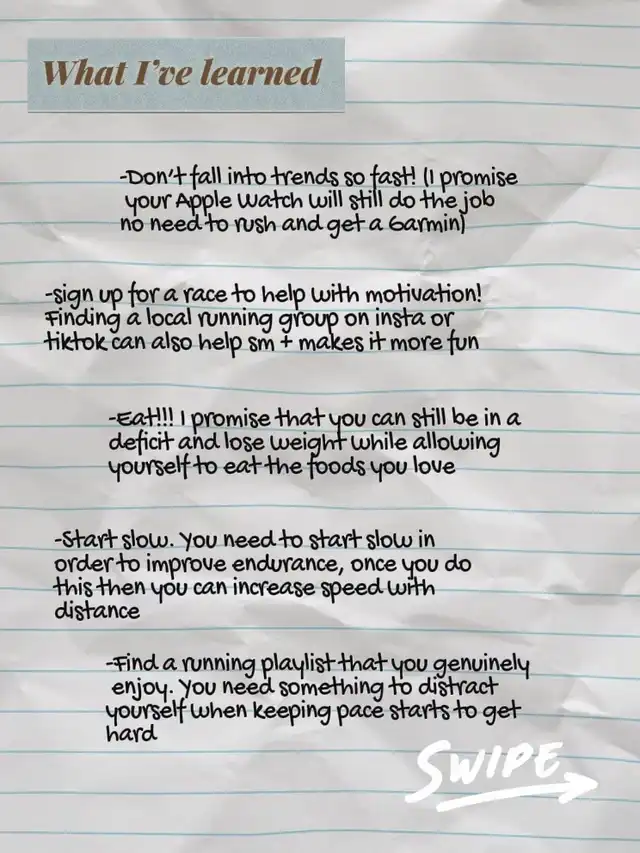 What I've learned
-Don't fall into trends so fast! (I promise
your Apple Watch will still do the job
no need to rush and get a Garmin)
-sign up for a race to help with motivation!
Finding a local running group on insta or
tiktok can also help sm + makes it more fun
-Eat!!! I promise that you can still be in a
deficit and lose weight while allowing
yourself to eat the foods you love
-Start slow. You need to start slow in
order to improve endurance, once you do
this then you can increase speed with
distance
-Find a running playlist that you genuinely
enjoy. You need something to distract
yourself when keeping pace starts to get
hard
SWIPE